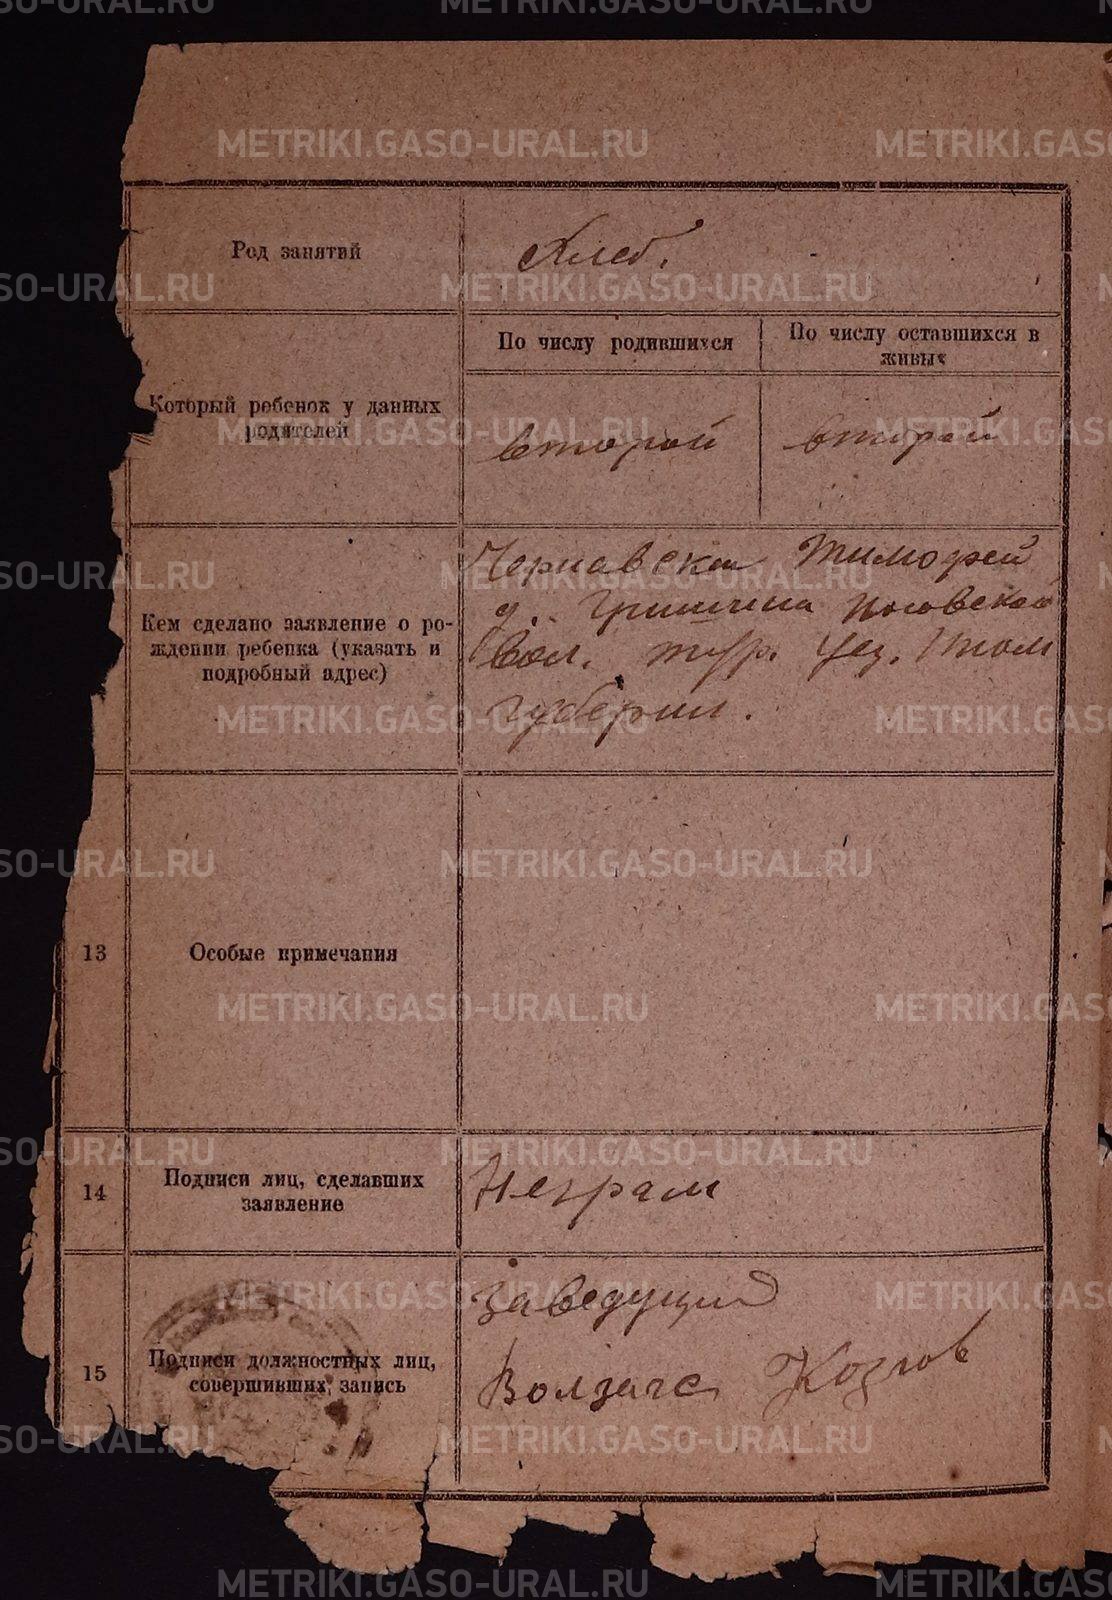 METRIKI.GASO-URAL.RU
Род занятий
Хлеб.
По числу родившихся
По числу оставшихся в
живых
Который ребенок у данных
родителей
второй
второй
Кем сделано заявление о ро-
ждении ребенка (указать и
подробный адрес)
Тимофей
д. Гришина
Вол. тур. уез. Тоб
губернии.
13
Особые примечания
14
Подписи лиц, сделавших
заявление
Неграм
15
Подписи должностных лиц,
совершивших запись
Заведущий
Волзагс Козлов